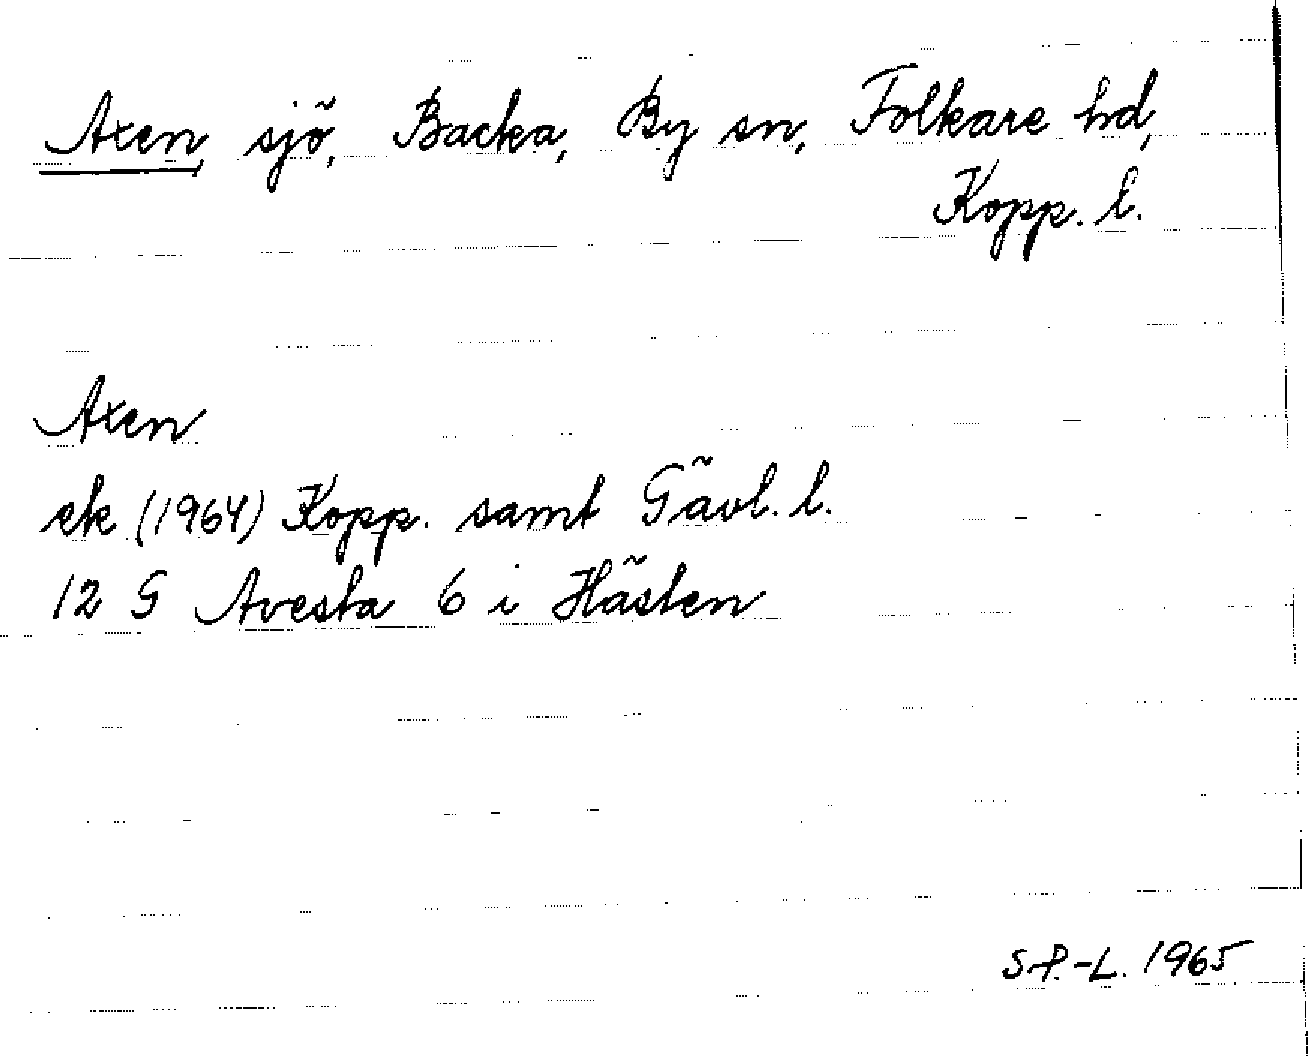 Axen, sjö, Backa, By sn, Folkare hd,
Kopp. l.
Axen
ek (1964) Kopp. samt Gävl. l.
12 G Avesta 6 i Hästen
S P.-L. 1965